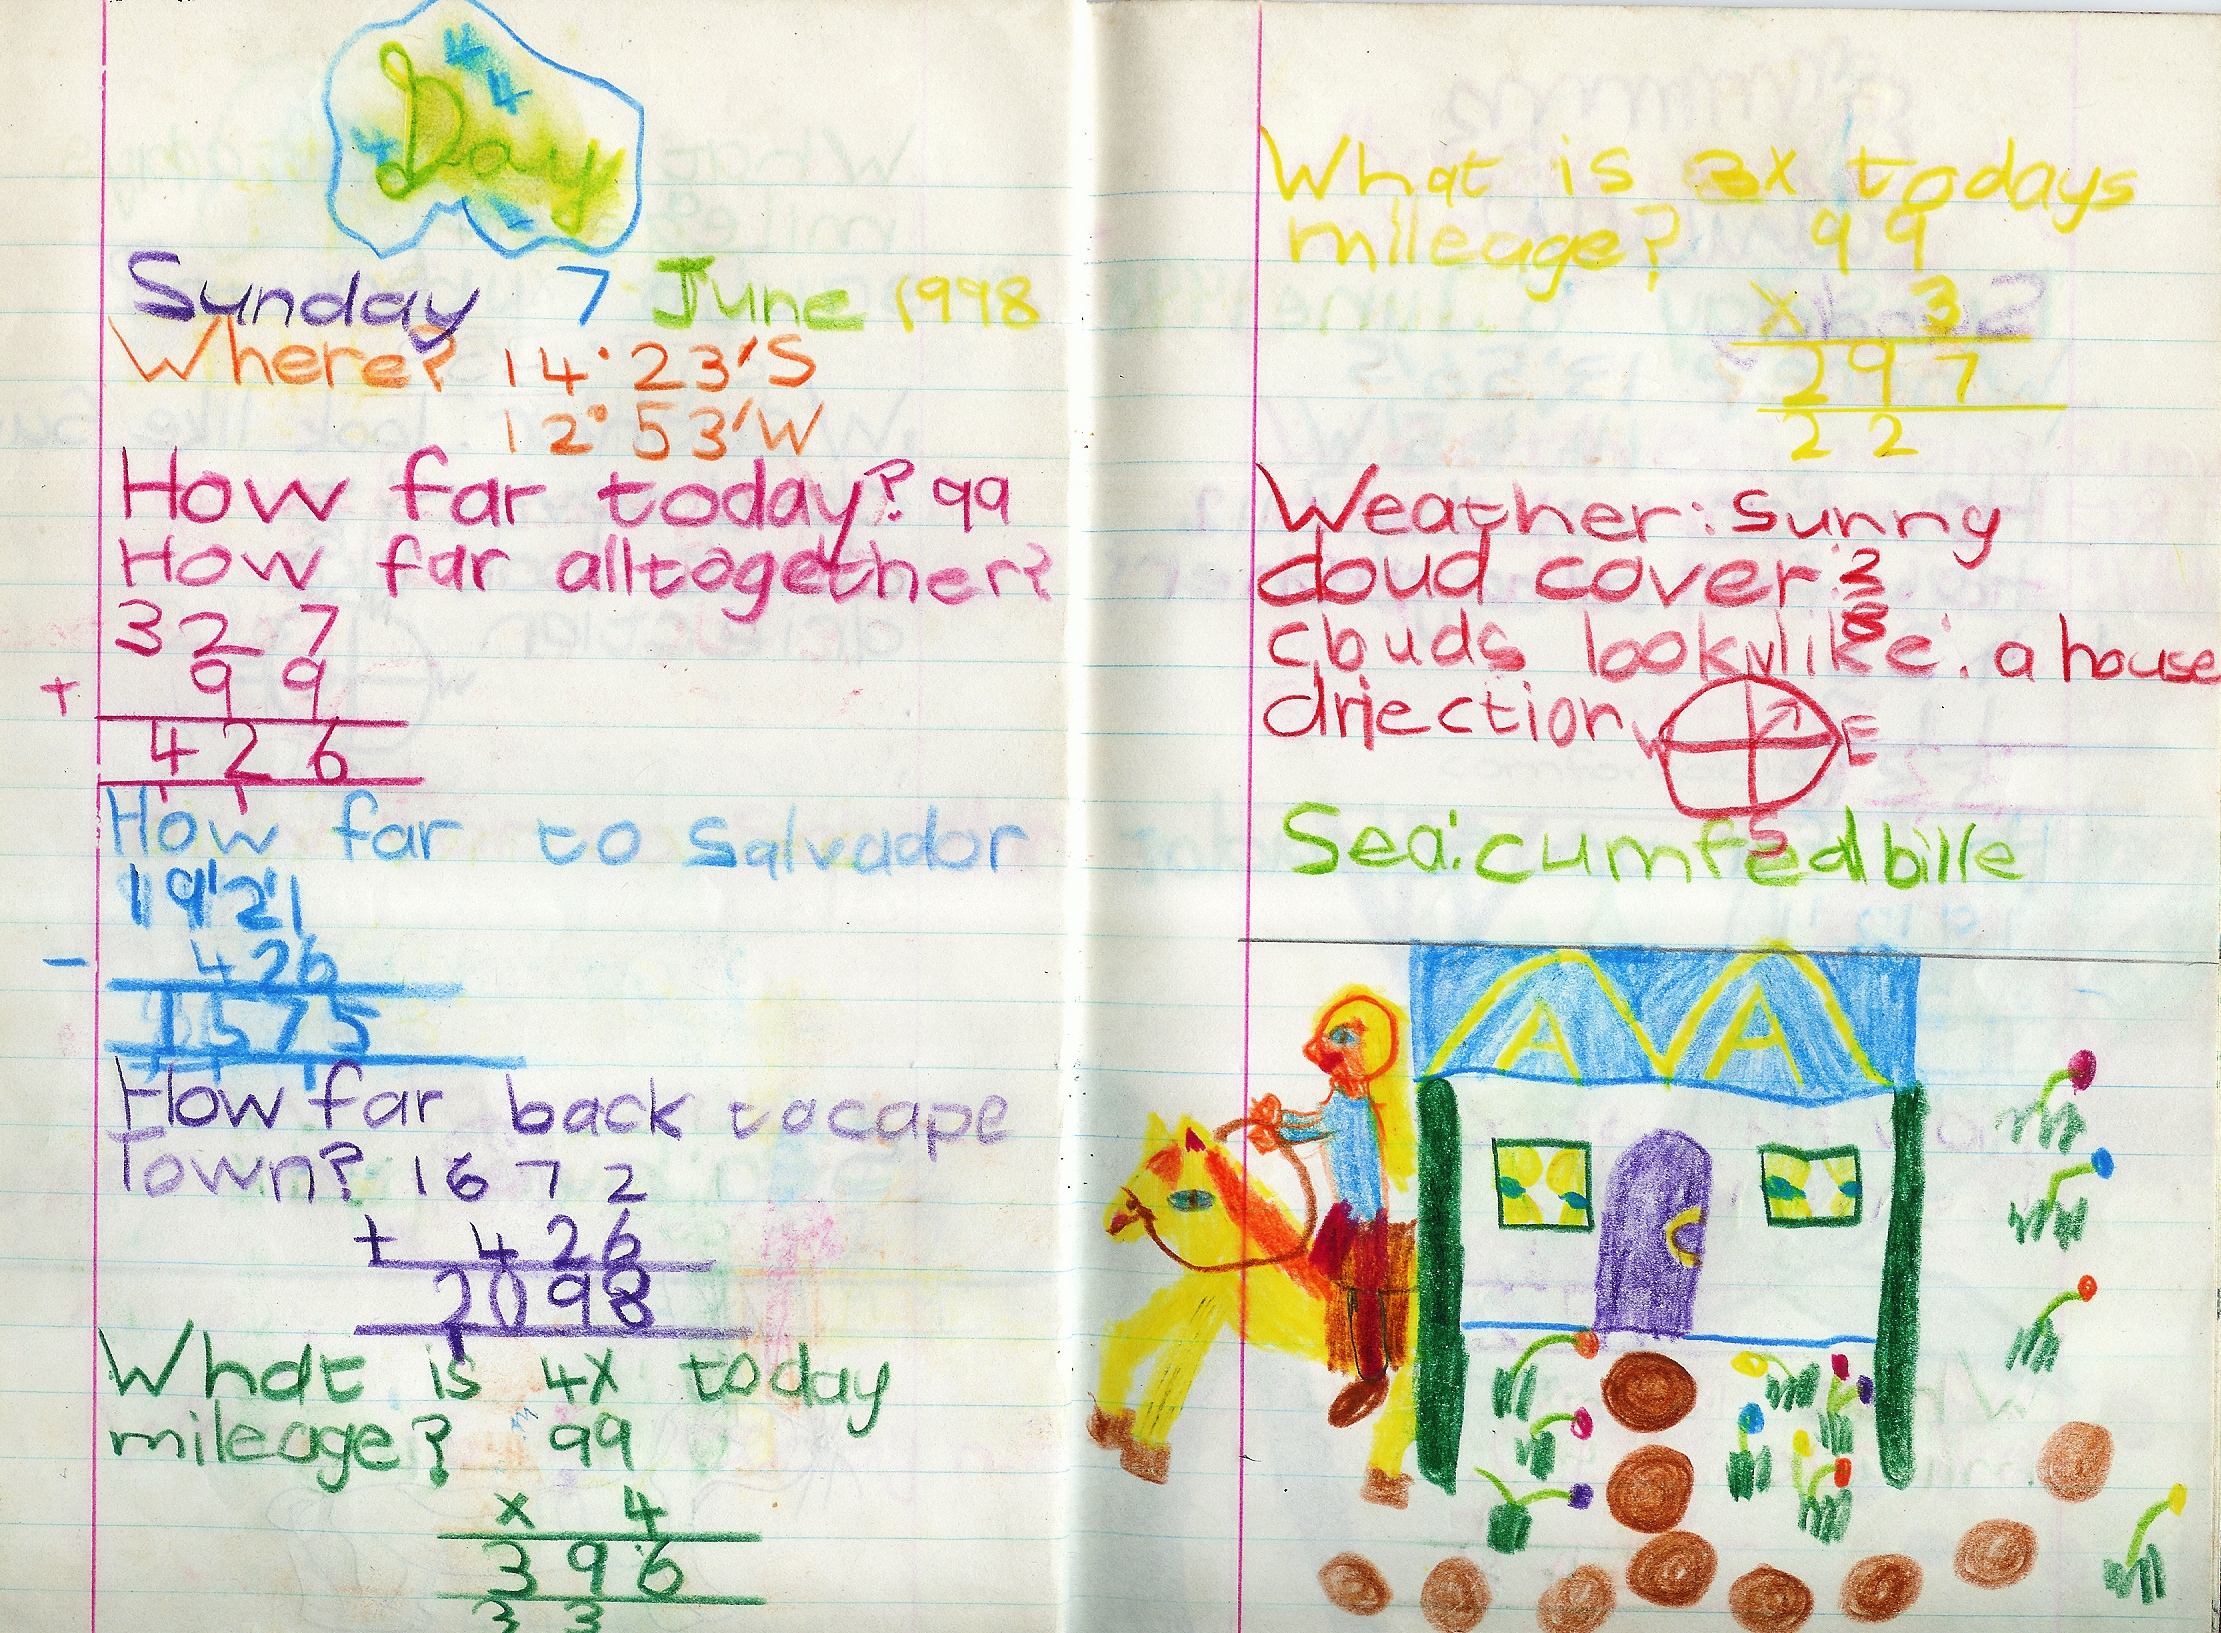 4
4
4 Day
Sunday 7 June 1998
Where? 14°23'S
12°53'W
How far today? 99
How far alltogether?
327
+ 99
426
1 1
How far to Salvador
1921
- 426
1575
How far back to cape
Town? 1672
+ 426
2098
1
What is 4x today
mileage? 99
x 4
396
3 3
What is 3x todays
mileage? 99
x 3
297
2 2
Weather: sunny
cloud cover: 2
8
clouds look like: a house
N
driection W E
S
Sea: cumfedbille
A A